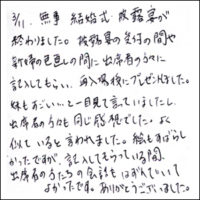 3/11、無事 結婚式・披露宴が
終わりました。披露宴の受付の間や
新婦の色直しの間に 出席者の方々に
記入してもらい、再入場後にプレゼントしました。
妹もすごい!!と一目見て言っていましたし、
出席者の方々も同じ感想でした。よく
似ていると言われました。絵もすばらし
かったですが、記入してもらっている間、
出席者の方たちの会話もはずんでいて
よかったです。ありがとうございました。